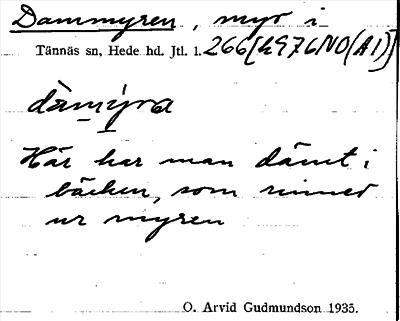 Dammyren, myr i
Tännäs sn, Hede hd. Jtl. l. 266 [h976NO(A1)]
dàmýra
Här har man dämt i
bäcken, som rinner
ur myren
O. Arvid Gudmundson 1935.